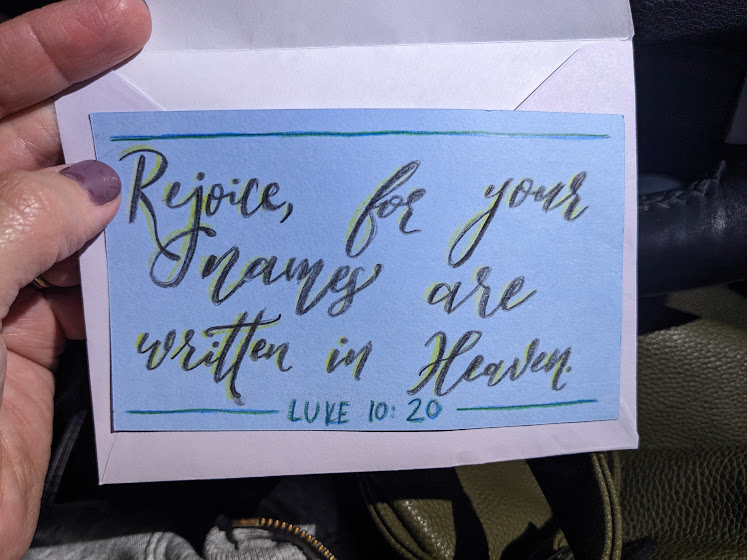 Rejoice, for your
names are
written in Heaven.
LUKE 10:20